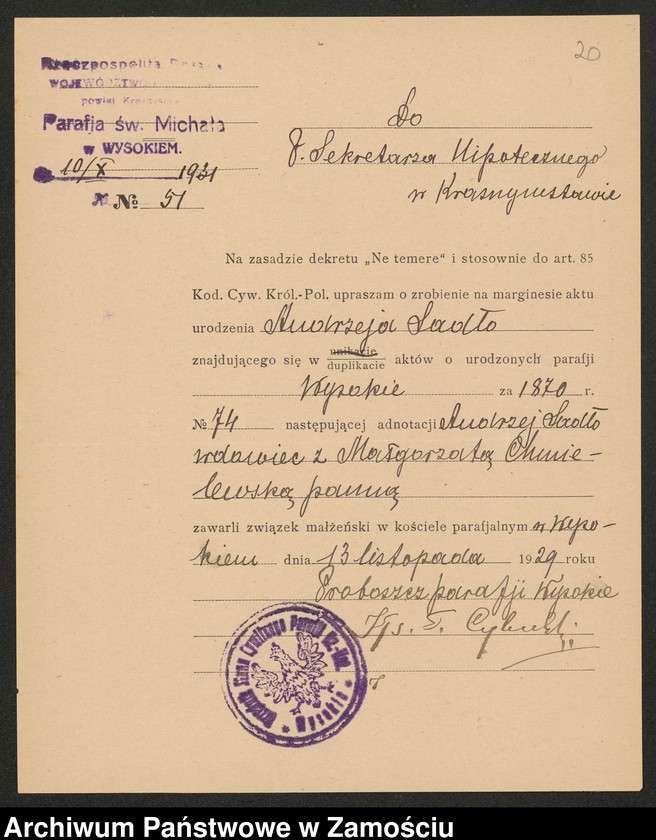 20
Rzeczpospolita Polska
WOJEWÓDZTWO
powiat
Parafja św. Michała
w WYSOKIEM.
10/X 1931
№ 51
Do
P. Sekretarza Hipotecznego
w Krasnymstawie
Na zasadzie dekretu „Ne temere“ i stosownie do art. 85
Kod. Cyw. Król.-Pol. upraszam o zrobienie na marginesie aktu
urodzenia Andrzeja Sadło
znajdującego się w unikacie duplikacie aktów o urodzonych parafji
Wysokie za 1870 r.
№ 74 następującej adnotacji Andrzej Sadło
wdowiec z Małgorzatą Chmie-
lewską panną
zawarli związek małżeński w kościele parafjalnym w Wyso-
kiem dnia 13 listopada 1929 roku
Proboszcz parafji Wysokie
Urzędnik Stanu Cywilnego Parafii Rz.-Kat. Wysokie
Archiwum Państwowe w Zamościu